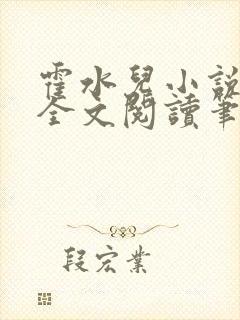 霍水兒小說
全文閱讀筆
段宏業